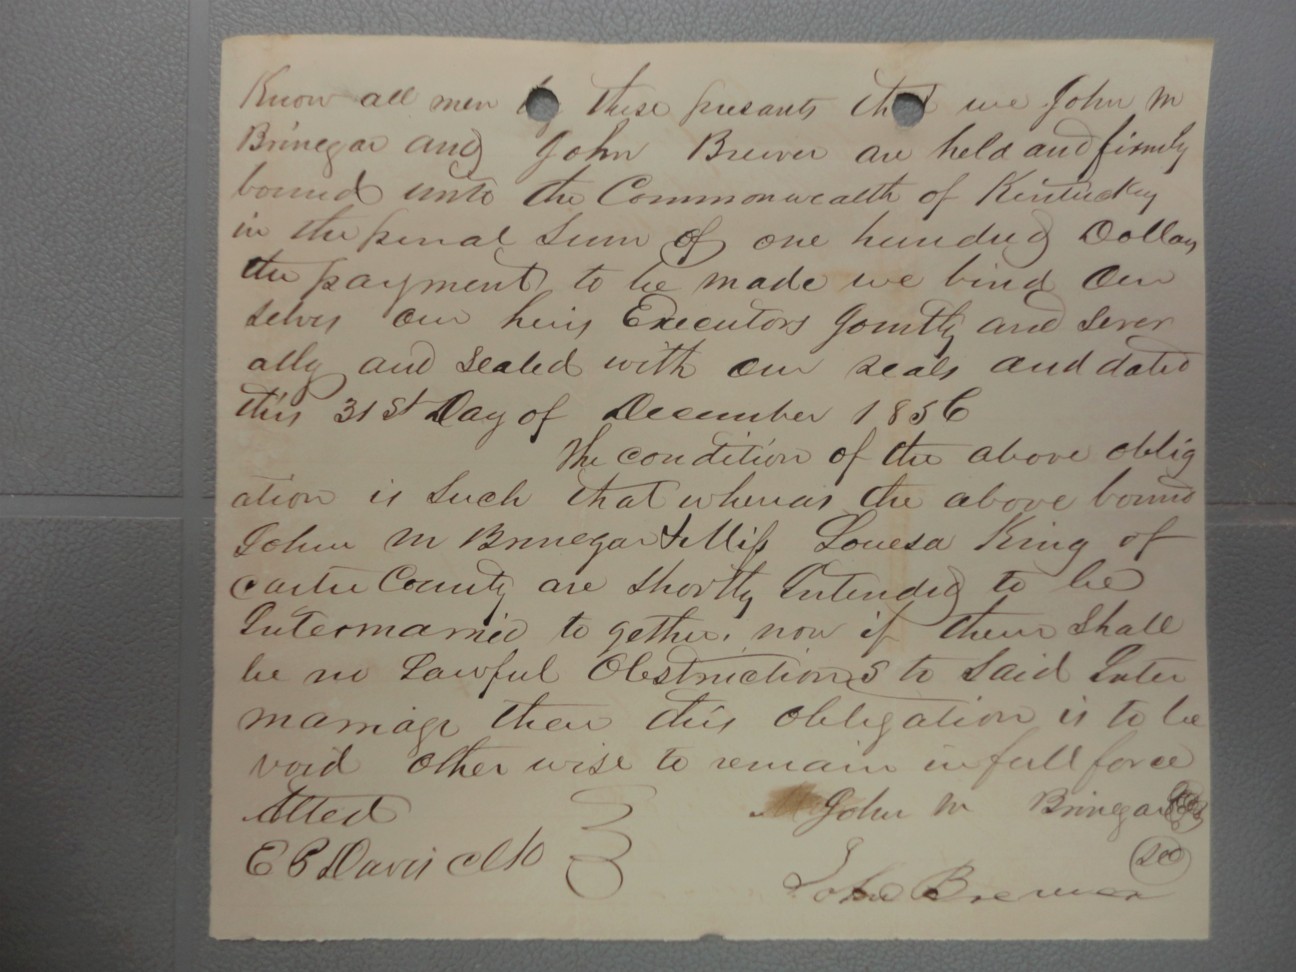 Know all men by these presants that we John M
Brinegar and John Brewer are held and firmly
bound unto the Commonwealth of Kentuckey
in the penal Sum of one hundred Dollars
the payment to be made we bind our
selves our heirs Executors Jointly and Sever
ally and sealed with our seals and dated
this 31st Day of December 1856
The condition of the above oblig
ation is Such that whereas the above bound
John M Brinegar & Miss Louesa King of
Carter County are Shortly Intended to be
Intermarried to gether, now if there Shall
be no Lawful Obstructions to Said Inter
marriage then this obligation is to be
void other wise to remain in full force
Attest
John M Brinegar
E B Davis Clk
John Brewer